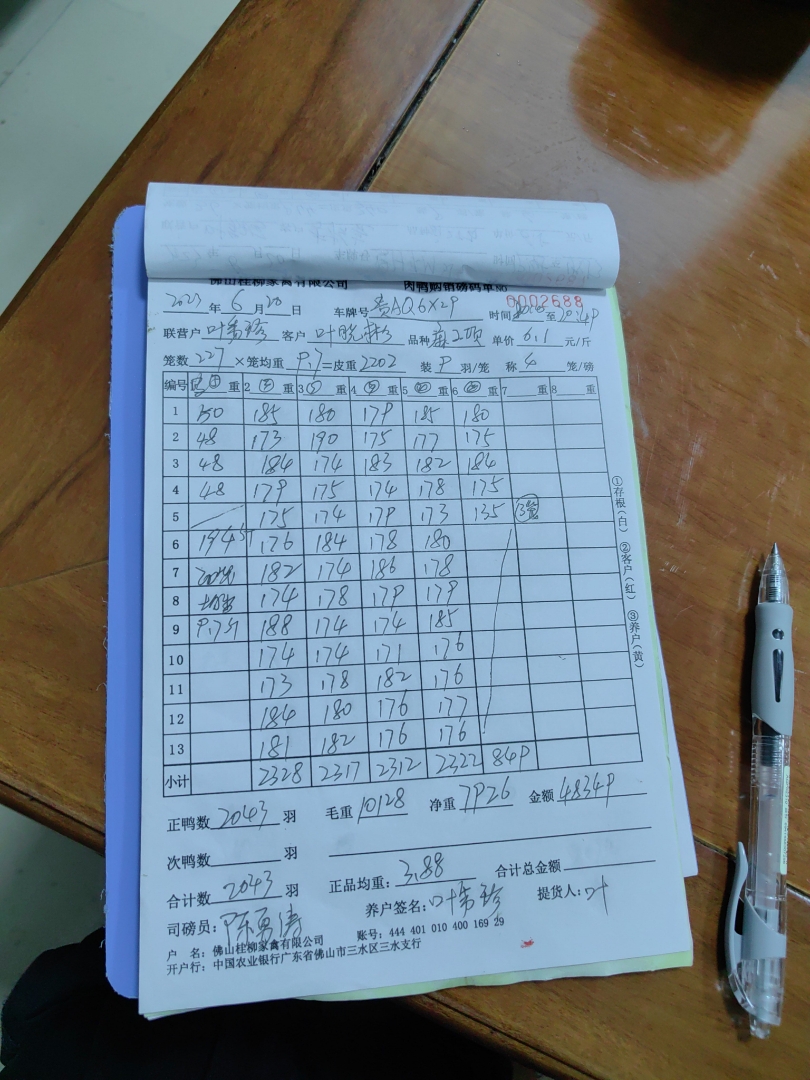 佛山桂柳家禽有限公司 肉鸭购销磅码单 NO 0002688
2023年6月20日 车牌号 AQ6X29 时间 至
联营户 叶 客户 叶晓彬 品种 单价 6.1 元/斤
笼数 227 ×笼均重 9.7 =皮重 2202 装 9 羽/笼 称 4 笼/磅
编号 重 2 重 3 重 4 重 5 重 6 重 7 重 8 重
1 50 185 180 179 185 180
2 48 173 190 175 177 175
3 48 184 174 183 182 184
4 48 179 175 174 178 175
5 175 174 179 173 135 3笼
6 194斤 176 184 178 180
7 182 174 186 178
8 174 178 179 179
9 9.7斤 188 174 174 185
10 174 174 171 176
11 173 178 182 176
12 184 180 176 177
13 181 182 176 176
小计 2328 2317 2312 2322 849
正鸭数 2043 羽 毛重 10128 净重 7926 金额 48349
次鸭数 羽
合计数 2043 羽 正品均重: 3.88 合计总金额
司磅员: 陈勇涛 养户签名: 叶 提货人: 叶
户 名: 佛山桂柳家禽有限公司 账号: 444 401 010 400 169 29
开户行: 中国农业银行广东省佛山市三水区三水支行
①存根(白) ②客户(红) ③养户(黄)